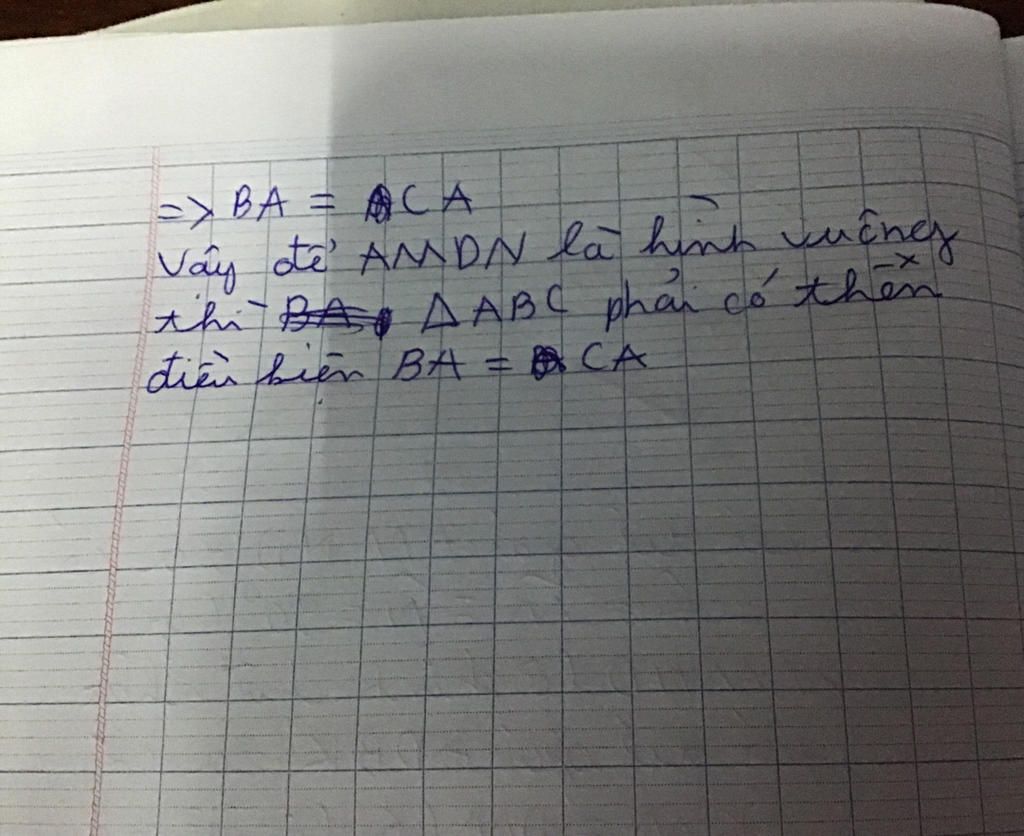 => BA = CA
Vậy để AMDN là hình vuông
thì ΔABC phải có thên
điều kiện BA = CA